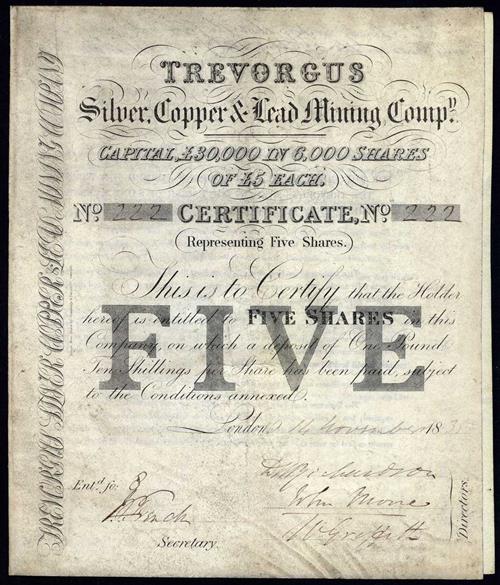 TREVORGUS
Silver, Copper & Lead Mining Compy.
CAPITAL, £30,000 IN 6,000 SHARES
OF £5 EACH.
No 222 CERTIFICATE, No 222
Representing Five Shares.
This is to Certify that the Holder
hereof is entitled to FIVE SHARES in this
Company, on which a deposit of One Pound
Ten Shillings per Share has been paid, subject
to the Conditions annexed.
FIVE
London, 14 November 183
Entd. fo: 8
Richardson
John Moore
W Griffith
Finch
Secretary.
Directors.
TREVORGUS SILVER COPPER & LEAD MINING COMPANY